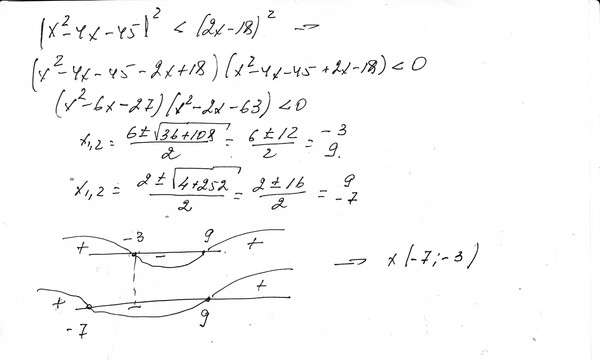 (x²-4x-45)² < (2x-18)² ⇒
(x²-4x-45-2x+18)(x²-4x-45+2x-18)<0
(x²-6x-27)(x²-2x-63)<0
x₁,₂ = (6±√(36+108))/2 = (6±12)/2 = -3 9.
x₁,₂ = (2±√(4+252))/2 = (2±16)/2 = 9 -7
-3 9
+ - +
⇒ x(-7;-3)
+ - +
-7 9